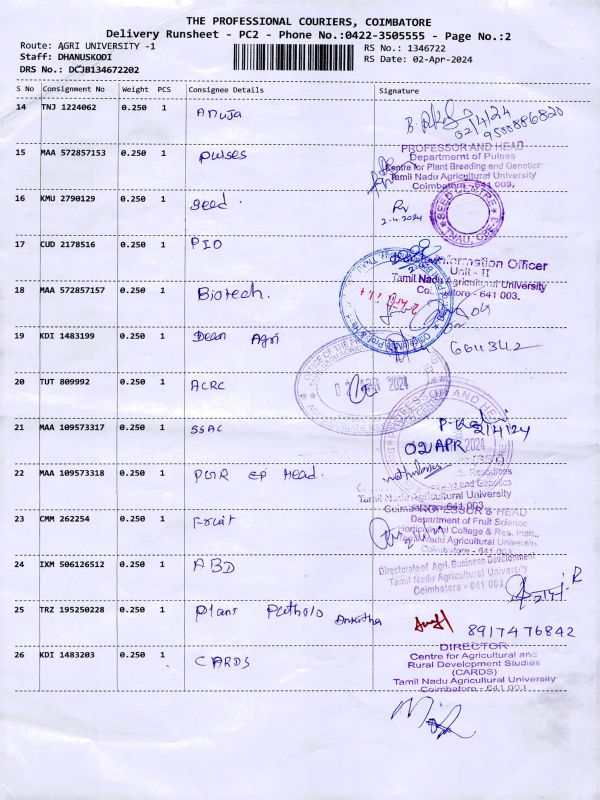 THE PROFESSIONAL COURIERS, COIMBATORE
Delivery Runsheet - PC2 - Phone No.:0422-3505555 - Page No.:2
Route: AGRI UNIVERSITY -1
RS No.: 1346722
Staff: DHANUSKODI
RS Date: 02-Apr-2024
DRS No.: DCJB134672202
S No Consignment No Weight PCS Consignee Details Signature
14 TNJ 1224062 0.250 1 Anuja
02/4/24
9500886820
15 MAA 572857153 0.250 1 Pulses
PROFESSOR AND HEAD
Department of Pulses
Centre for Plant Breeding and Genetics
Tamil Nadu Agricultural University
Coimbatore - 641 003.
16 KMU 2790129 0.250 1 Seed.
2-4-2024
SEED CENTRE
TNAU, CBE-3
17 CUD 2178516 0.250 1 PIO
Information Officer
Unit - II
Tamil Nadu Agricultural University
Coimbatore - 641 003.
18 MAA 572857157 0.250 1 Biotech.
19 KDI 1483199 0.250 1 Dean Agri
6611342
20 TUT 809992 0.250 1 ACRC
02 APR 2024
21 MAA 109573317 0.250 1 SSAC
2/4/24
02 APR 2024
22 MAA 109573318 0.250 1 PGR EP Head.
Tamil Nadu Agricultural University
Coimbatore - 641 003.
23 CMM 262254 0.250 1 Fruit
PROFESSOR & HEAD
Department of Fruit Science
Horticultural College & Res. Insti.,
Tamil Nadu Agricultural University
Coimbatore - 641 003.
24 IXM 506126512 0.250 1 ABD
Directorate of Agri. Business Development
Tamil Nadu Agricultural University
Coimbatore - 641 003.
25 TRZ 195250228 0.250 1 Plant Patholo Ankitha
8917476842
26 KDI 1483203 0.250 1 CARDS
DIRECTOR
Centre for Agricultural and
Rural Development Studies
(CARDS)
Tamil Nadu Agricultural University
Coimbatore - 641 003